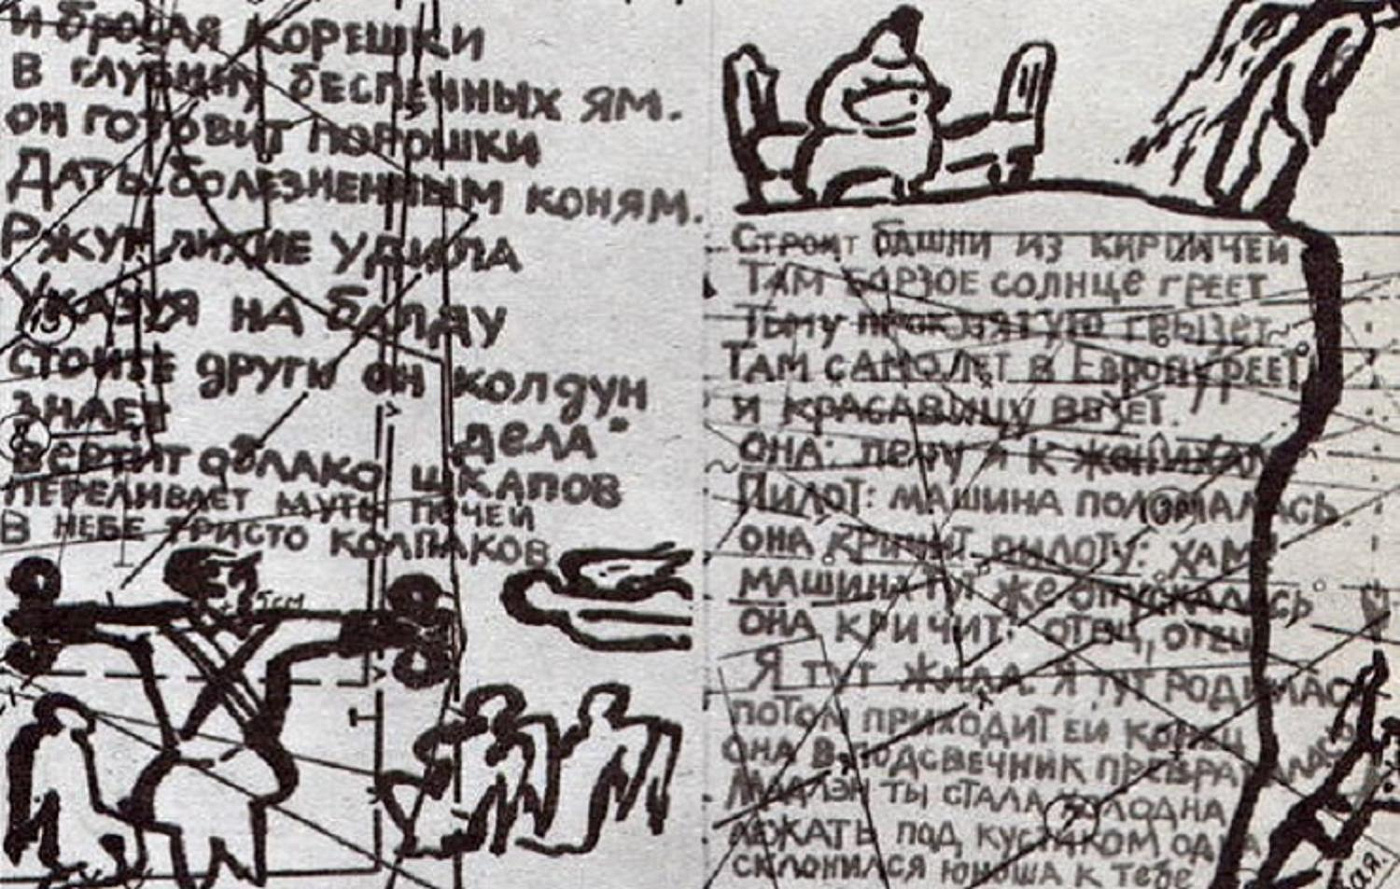 и бросая корешки
в глубину беспечных ям.
он готовит порошки
Дать болезненным коням.
Ржут лихие удила
Указуя на балду
стойте други он колдун
знает
дела"
вертит облако шкапов
переливает муть печей
в небе тристо колпаков
5см
13
8
Строит башни из кирпичей
Там борзое солнце греет
тьму проклятую грызет
Там самолет в Европу реет
и красавицу везет.
она: лечу я к женихам
Пилот: машина поломалась.
она кричит пилоту: хам!
машина тут же опускалась
она кричит: отец, отец
Я тут жила. Я тут родилась
потом приходит ей конец
она в подсвечник превратилась
Мадлэн ты стала холодна
лежать под кустиком одна
склонился юноша к тебе
7